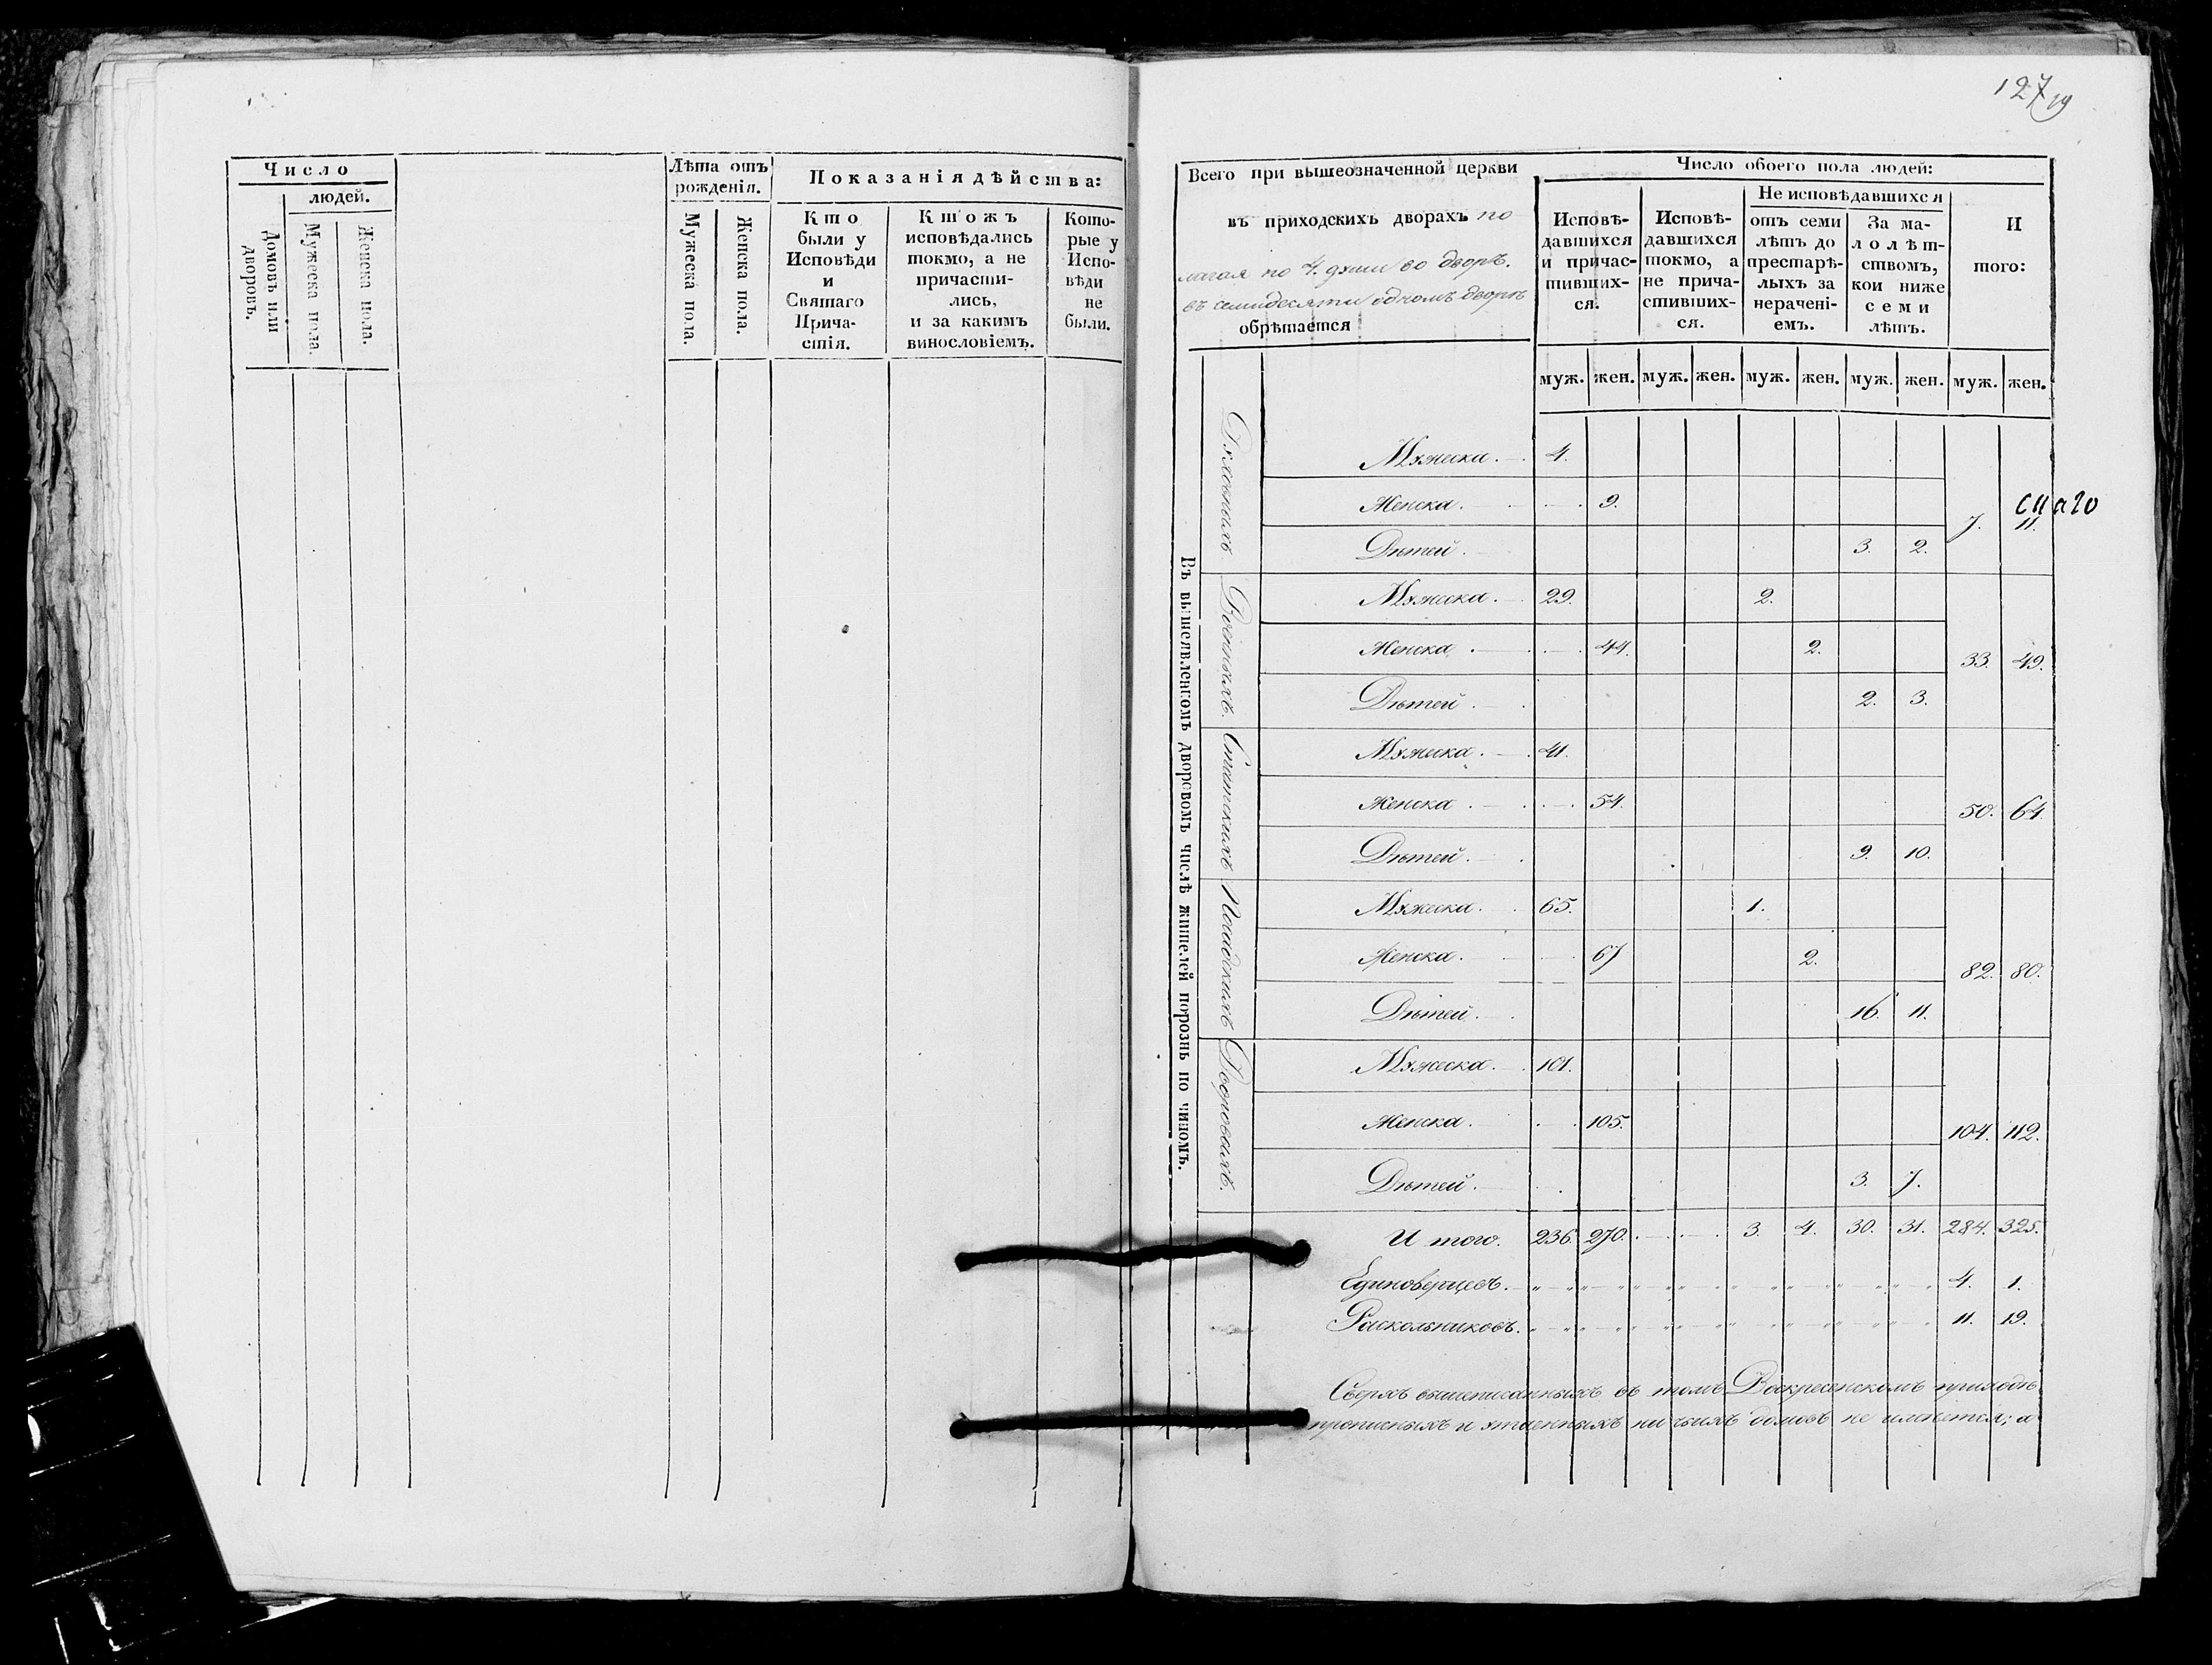 127 19
Число
людей.
Домовъ или дворовъ.
Мужеска пола.
Женска пола.
Лѣта отъ
рожденія.
Мужеска пола.
Женска пола.
Показанія дѣйства:
Кто
были у
Исповѣди
и
Святаго
Прича-
стія.
Ктожъ
исповѣдались
токмо, а не
причасти-
лись,
и за какимъ
винословіемъ.
Кото-
рые у
Испо-
вѣди
не
были.
Всего при вышеозначенной церкви
въ приходскихъ дворахъ по
лагая по 4. души во дворѣ.
въ семидесяти одномъ дворѣ
обрѣтается
Число обоего пола людей:
Исповѣ-
давшихся
и причас-
тивших-
ся.
Исповѣ-
давшихся
токмо, а
не прича-
стивших-
ся.
Не исповѣдавшихся
отъ семи
лѣтъ до
престарѣ-
лыхъ за
нерачені-
емъ.
За ма-
лолѣт-
ствомъ,
кои ниже
семи
лѣтъ.
И
того:
муж. жен. муж. жен. муж. жен. муж. жен. муж. жен.
Въ вышеявленномъ дворовомъ числѣ жителей порознь по чиномъ.
Духовныхъ
Мужеска. 4.
Женска. 9.
Дѣтей. 3. 2.
7. 11.
Военныхъ.
Мужеска. 29. 2.
Женска. 44. 2.
Дѣтей. 2. 3.
33. 49.
Статскихъ
Мужеска. 41.
Женска. 54.
Дѣтей. 9. 10.
50. 64.
Посадскихъ
Мужеска. 65. 1.
Женска. 67 2.
Дѣтей. 16. 11.
82. 80.
Дворовыхъ.
Мужеска. 101.
Женска. 105.
Дѣтей. 3. 7.
104. 112.
И того. 236. 270. 3. 4. 30. 31. 284. 325.
Единоверцевъ. 4. 1.
Раскольниковъ. 11. 19.
Сверхъ вышеписанныхъ въ томъ Воскресенскомъ приходѣ
прописныхъ и утаенныхъ ни чьихъ домовъ не имѣется; а